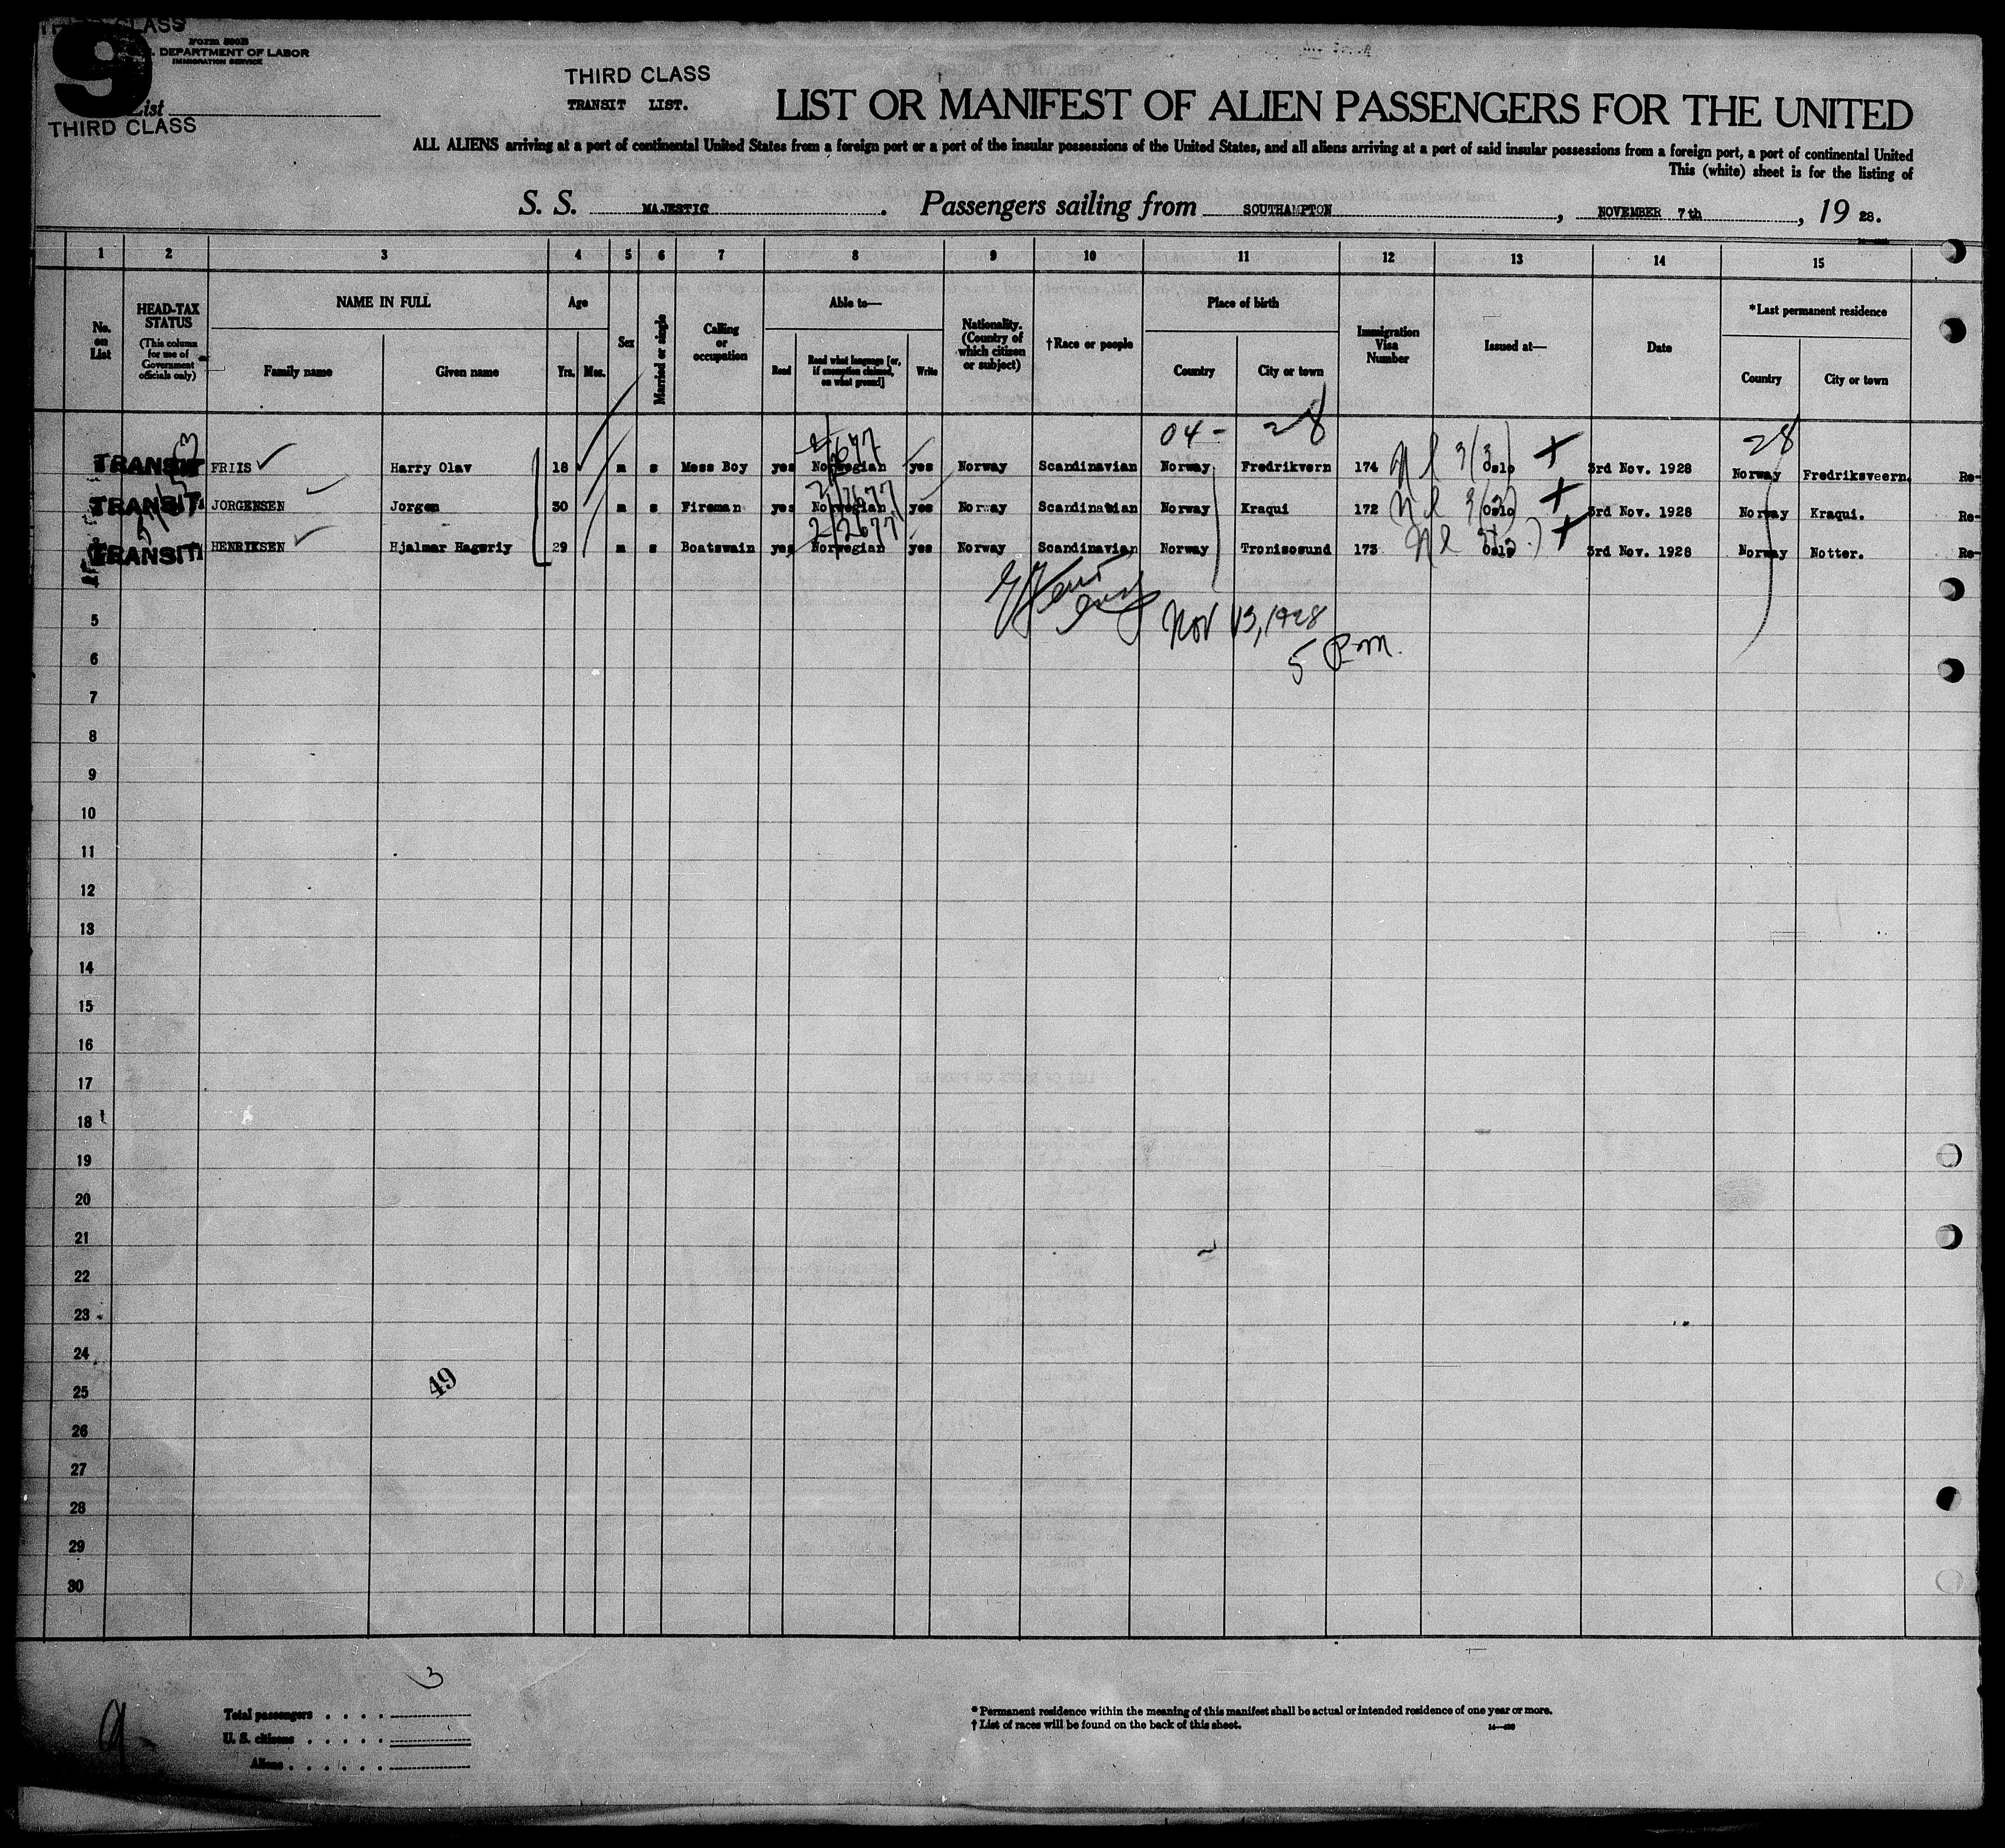 THIRD CLASS
9
Form 500B
DEPARTMENT OF LABOR
IMMIGRATION SERVICE
List
THIRD CLASS
THIRD CLASS
TRANSIT LIST.
LIST OR MANIFEST OF ALIEN PASSENGERS FOR THE UNITED
ALL ALIENS arriving at a port of continental United States from a foreign port or a port of the insular possessions of the United States, and all aliens arriving at a port of said insular possessions from a foreign port, a port of continental United
This (white) sheet is for the listing of
S. S. MAJESTIC. Passengers sailing from SOUTHAMPTON, NOVEMBER 7th, 19 28.
1 2 3 4 5 6 7 8 9 10 11 12 13 14 15
No. on List
HEAD-TAX STATUS
(This column for use of Government officials only)
NAME IN FULL
Family name
Given name
Age
Yrs.
Mos.
Sex
Married or single
Calling or occupation
Able to—
Read
Read what language [or, if exemption claimed, on what ground]
Write
Nationality. (Country of which citizen or subject)
†Race or people
Place of birth
Country
City or town
Immigration Visa Number
Issued at—
Date
*Last permanent residence
Country
City or town
04- 28 28
TRANSIT FRIIS Harry Olav 18 m s Mess Boy yes Norwegian yes Norway Scandinavian Norway Fredrikvern 174 Oslo 3rd Nov. 1928 Norway Fredriksveern. Re-
TRANSIT JORGENSEN Jorgen 30 m s Fireman yes Norwegian yes Norway Scandinavian Norway Kraqui 172 Oslo 3rd Nov. 1928 Norway Kraqui. Re-
TRANSIT HENRIKSEN Hjalmar Hageriy 29 m s Boatswain yes Norwegian yes Norway Scandinavian Norway Tronisosund 173 Oslo 3rd Nov. 1928 Norway Notter. Re-
Nov 13, 1928
5 P.m.
5
6
7
8
9
10
11
12
13
14
15
16
17
18
19
20
21
22
23
24
49
25
26
27
28
29
30
3
Total passengers
U. S. citizens
Aliens
* Permanent residence within the meaning of this manifest shall be actual or intended residence of one year or more.
† List of races will be found on the back of this sheet.